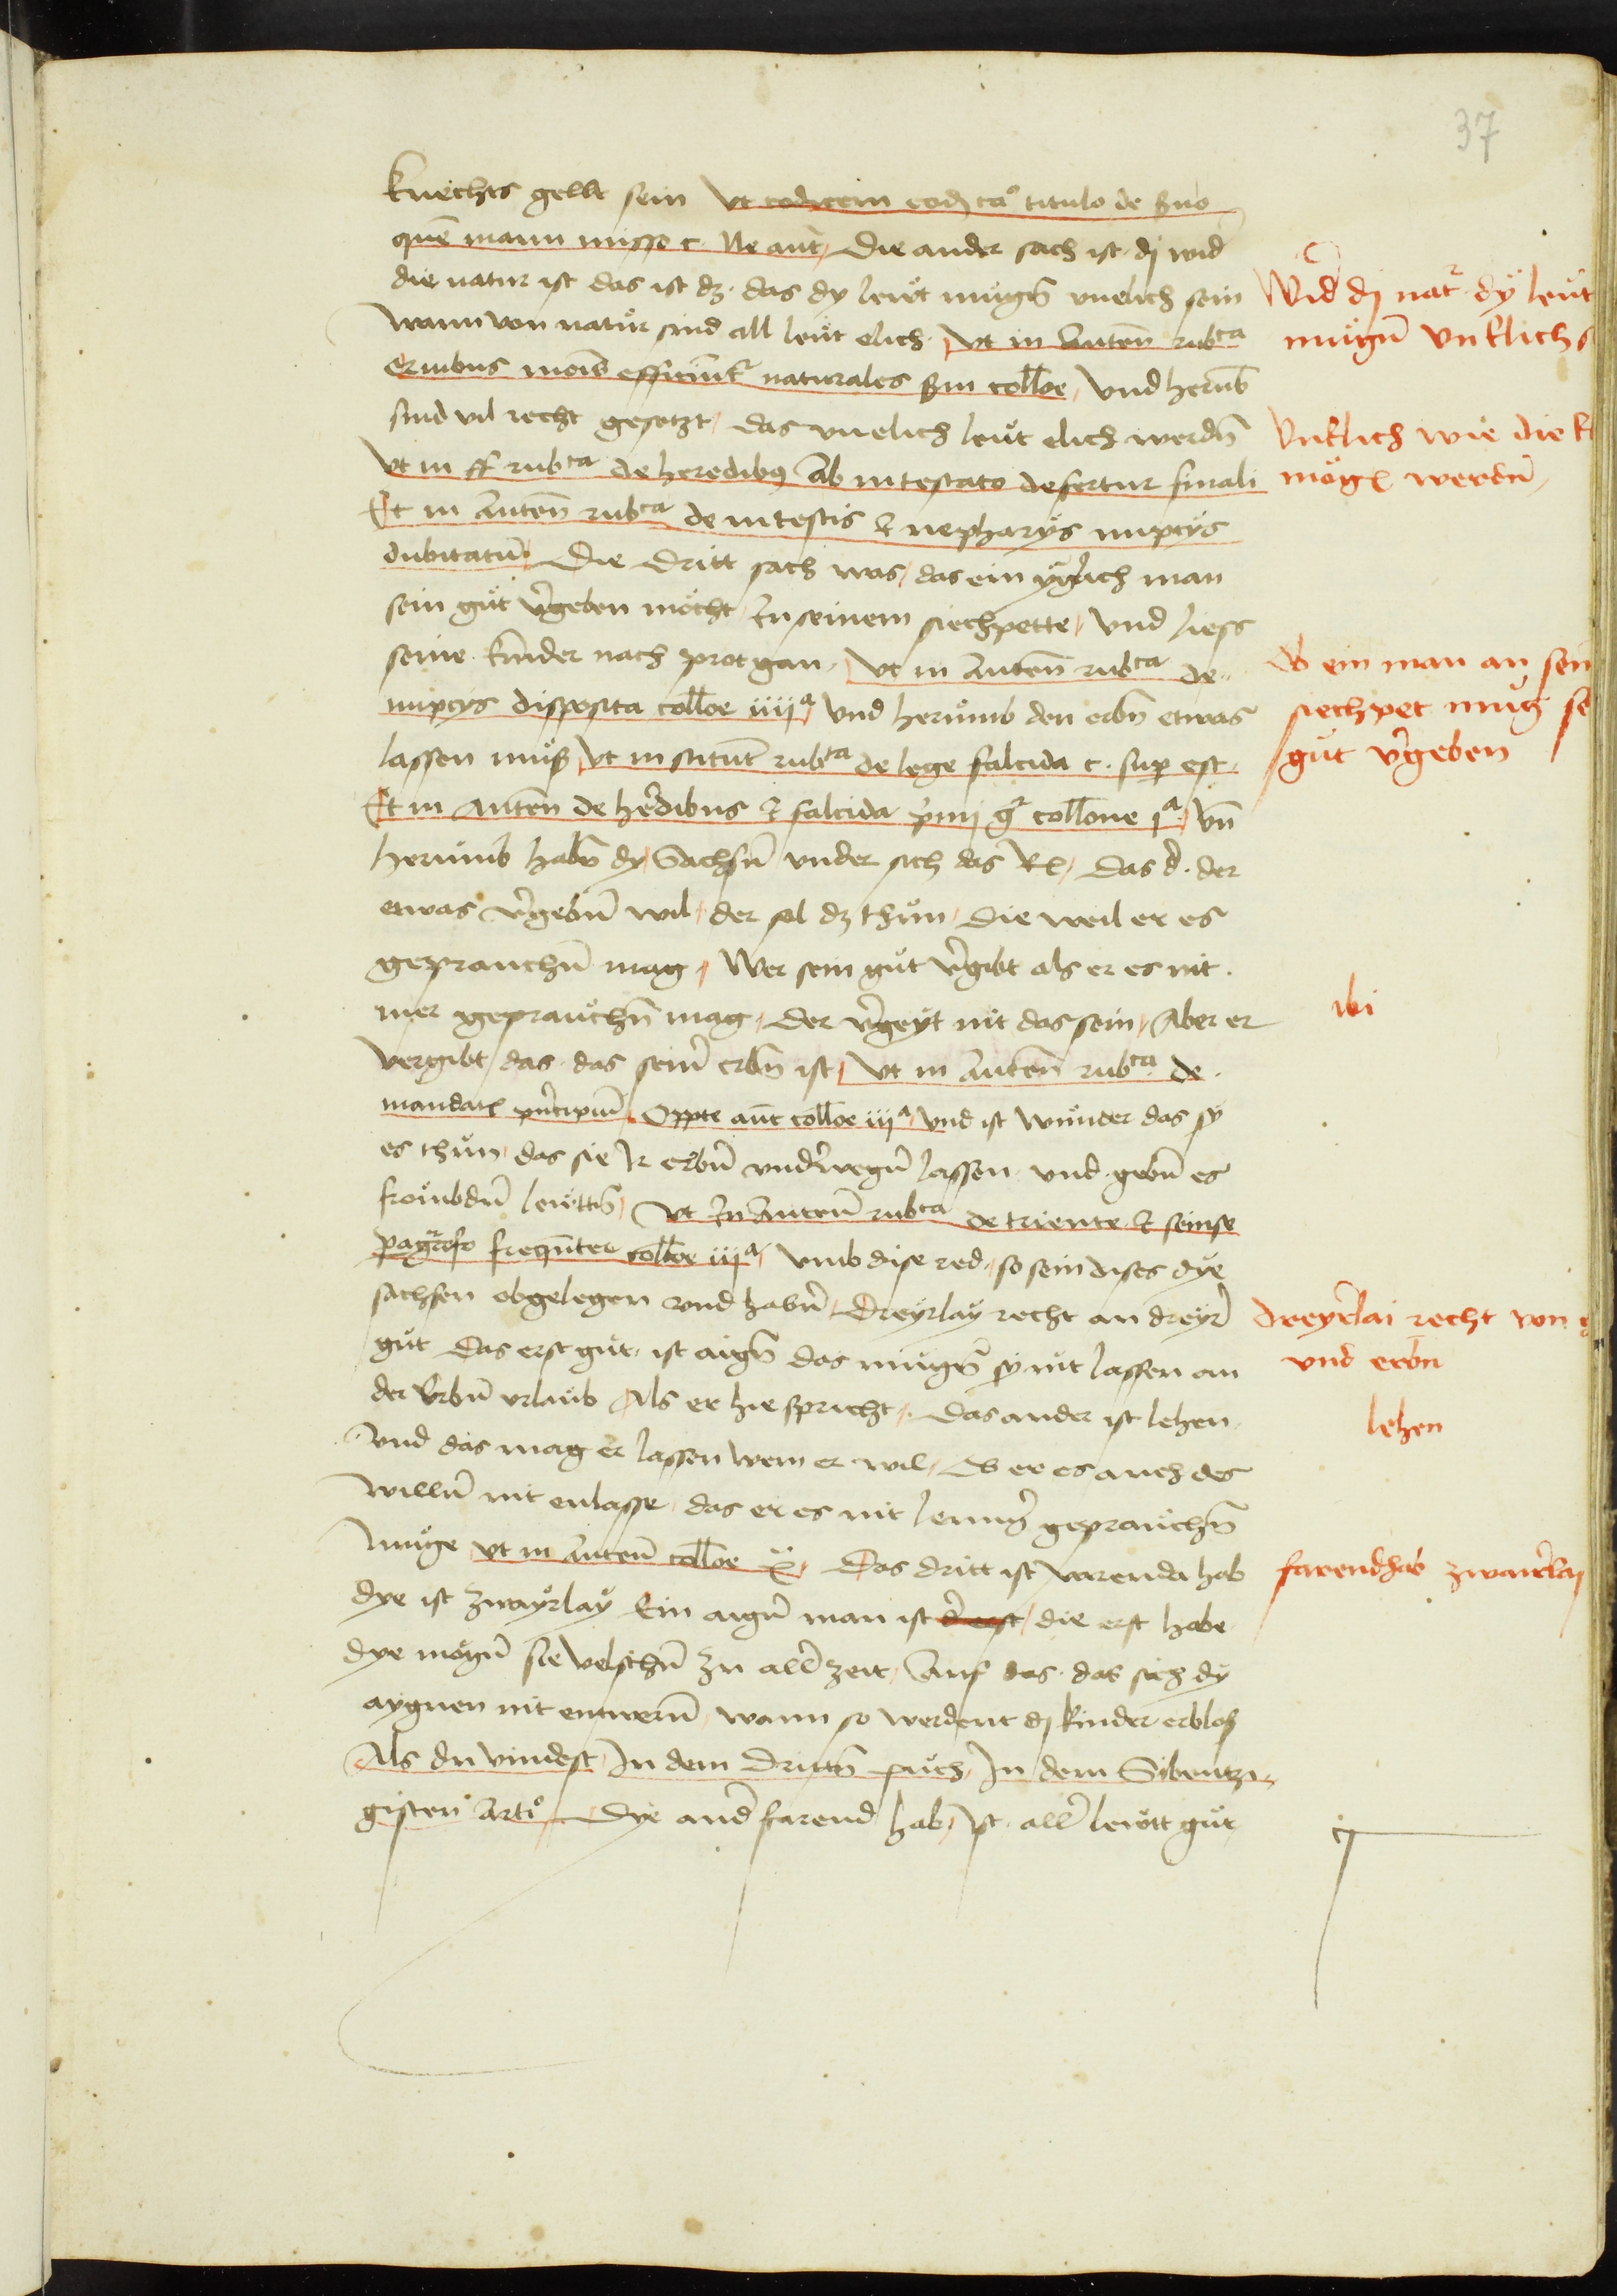 37
knechts gellt sein Vt codicem eod ca° titulo de suo
quē mann misso c. Ne aūt, Die ander sach ist dj wid
die natur ist das ist dz. das dy lewt mugn̄ vnelich sein
Wann von natur sind all leut elich. Vt in Auten̄ rubca
naturales sui colloe, Vnd herumb
sind vil recht gesetzt, das vnelich leut elich werdn̄
Vt in ff rubca de heredibus Ab intestato defertur finali
Et in Auten̄ rubca de intestis et nepharys nupcys
dubitatum. Die dritt sach was, das ein yglich man
sein gut v̄geben mocht In seinem siechpette, Vnd liess
seine kinder nach prot gan, Vt in Auten̄ rubca de
nupcys disposita colloe iiija, Vnd herumb den erbn̄ etwas
lassen muss Vt institut rubca de lege falcida c. sup est.
Et in Auten̄ de herdibus et falcida collone ja, Vn̄
herumb habn̄ dy Sachsn̄ vnder sich das Re, Das d. der
etwas v̄gebn̄ wil, der sol dz thun, die weil er es
geprauchn̄ mag, Wer sein gut v̄gibt als er es nit.
mer geprauchn̄ mag, der v̄geyt nit das sein, Aber er
vergibt das. das sein̄ erbn̄ ist, Vt in Auten̄ rubca de.
mandat principum Oppte aut colloe iija, Vnd ist wunder das sy
es thun, das sie Ir erbn̄ vnd̄wegn̄ lassen vnd gebn̄ es
frombdn̄ lewttn̄, Vt In Auten̄ rubca de triente et semse
pagrafo frequnter colloe iija, Vmb dise red, so sein dises dye
sachsen obgelegen vnd habn̄, Dreyrlay recht an dreyr
gut das erst gut ist aign̄ das mugn̄ sy nit lassen an
der Erbn̄ vrlaub Als er hie spricht, Das ander ist lehen
Vnd das mag er lassen wem er wil, Ob er es auch des
willn̄ nit enlasse, das er es nit lennḡ geprauchn̄
muge Vt in Auten̄ colloe x, Das dritt ist varenda hab
dye ist zwayrlay Ein aign̄ man ist d̄ erst, die erst habe
dye mogn̄ sie velschn̄ zu all̄ zeit, Auf das. das sich dy
aygnen nit entwern̄, wann so werdent dj kinder erbloz
Als du vindest, In dem Drittn̄ puch, In dem Sibentzi-
gisten Art°. Dye and̄ farend hab, ist all̄ lewtt gut
Wid dj nat̄ dy leut
mugn̄ Vnelich s
Vnelich wie die k
mogn̄ werdn̄,
Ob ein man an sein
siechpet mug se
gut v̄geben
ibi
dreyrlai recht von
vnd erbn
lehen
farendhab zwairlaj